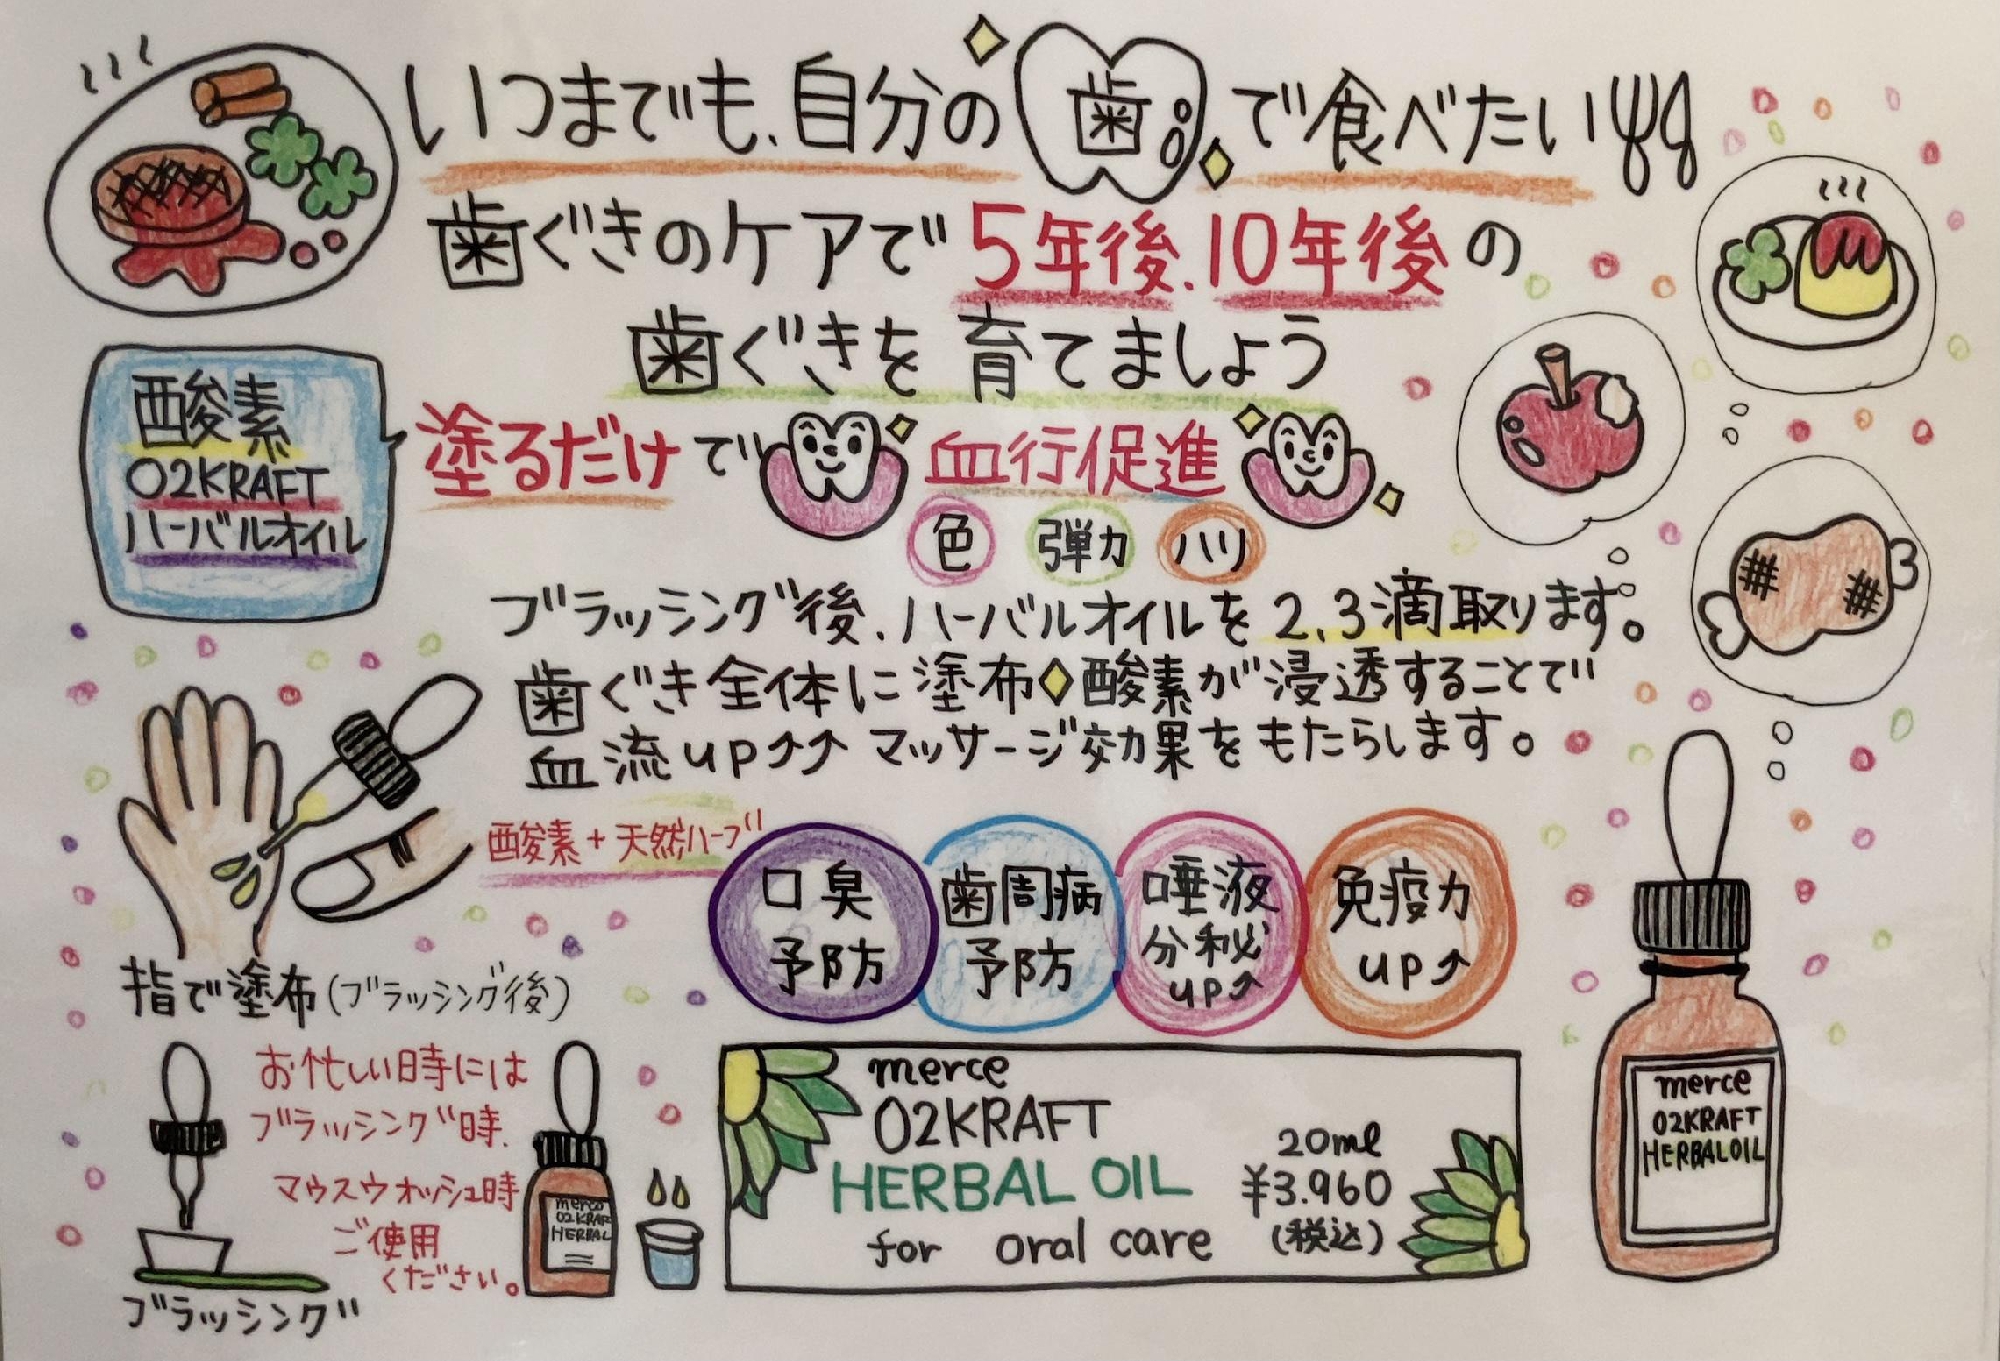 いつまでも、自分の歯で食べたい
歯ぐきのケアで5年後、10年後の
歯ぐきを育てましょう
酸素
O2KRAFT
ハーバルオイル
塗るだけで 血行促進
色 弾力 ハリ
ブラッシング後、ハーバルオイルを2、3滴取ります。
歯ぐき全体に塗布 酸素が浸透することで
血流up⤴⤴ マッサージ効果をもたらします。
酸素+天然ハーブ
口臭
予防
歯周病
予防
唾液
分秘
up⤴
免疫力
up⤴
指で塗布(ブラッシング後)
お忙しい時には
ブラッシング時、
マウスウォッシュ時
ご使用
ください。
ブラッシング
merce
O2KRAFT
HERBAL
merce
O2KRAFT
HERBAL OIL
for oral care
20ml
¥3.960
(税込)
merce
O2KRAFT
HERBAL OIL